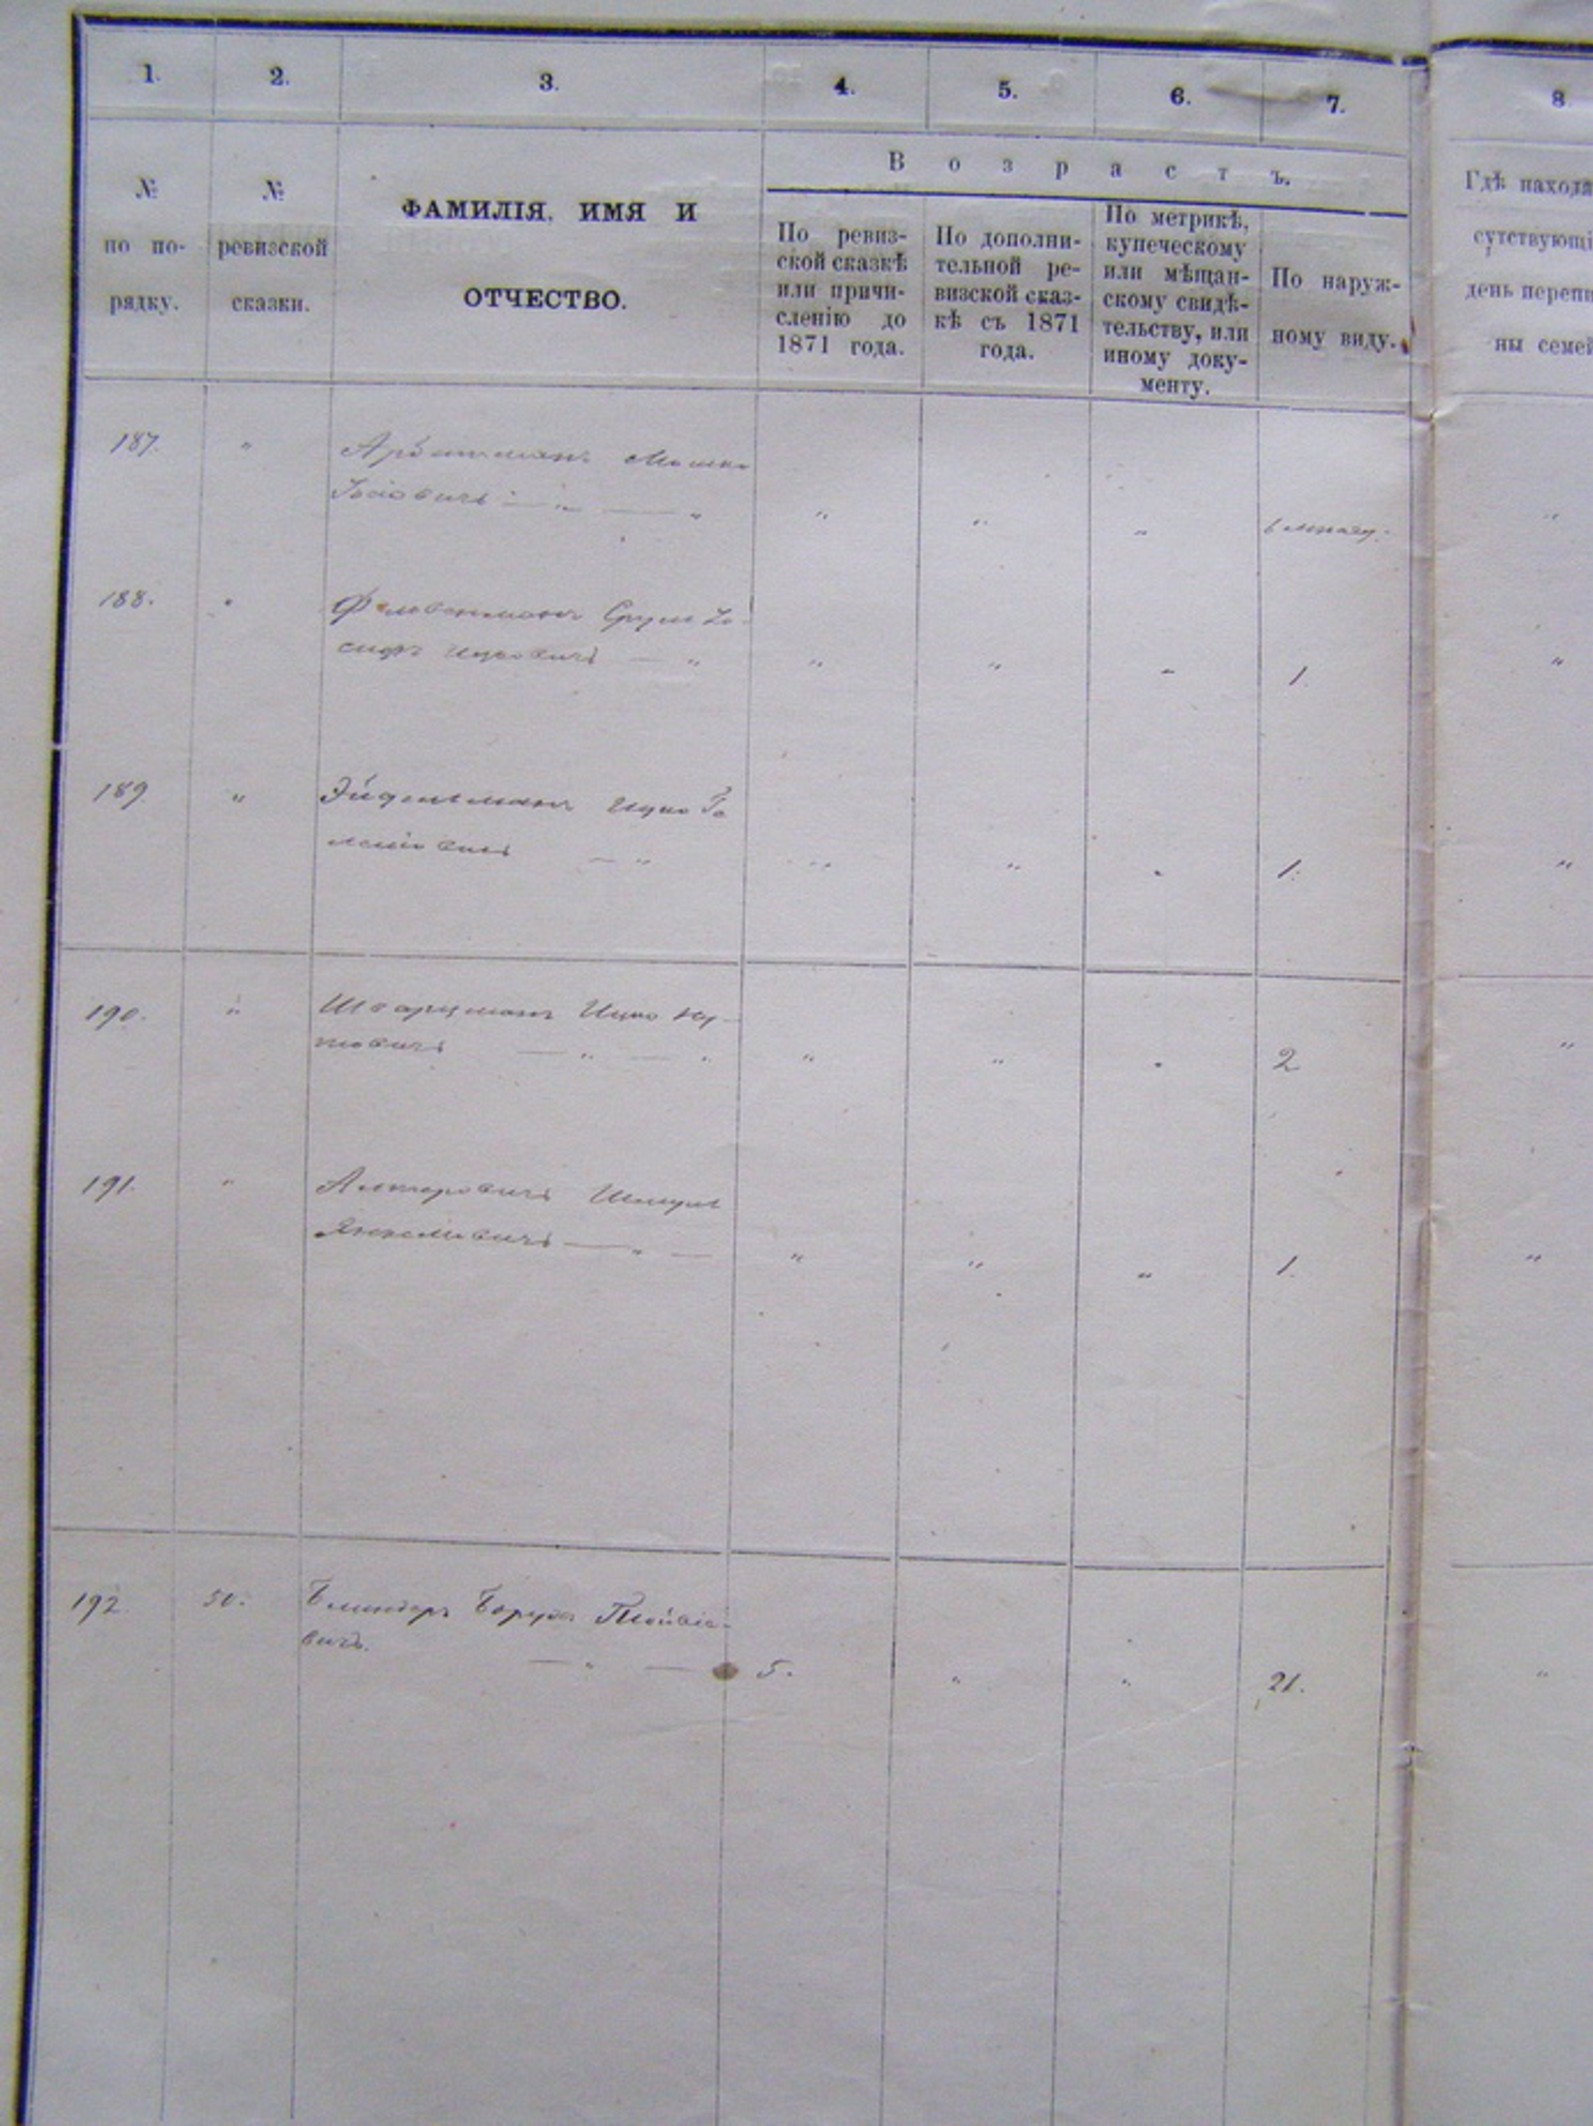 1. 2. 3. 4. 5. 6. 7. 8
№
по по-
рядку.
№
ревизской
сказки.
ФАМИЛІЯ, ИМЯ И
ОТЧЕСТВО.
Возрастъ.
По ревиз-
ской сказкѣ
или причи-
сленію до
1871 года.
По дополни-
тельной ре-
визской сказ-
кѣ съ 1871
года.
По метрикѣ,
купеческому
или мѣщан-
скому свидѣ-
тельству, или
иному доку-
менту.
По наруж-
ному виду.
Гдѣ находя
сутствующі
день переп
ны семей
187. " Арбитманъ Мошко
" " " "
188. " Фельдманъ Срул Іо-
сифъ Ицковичъ — "
" " " 1. "
189 " Эйдельманъ Ицко
— "
" " " 1. "
190. " Шварцманъ Ицко Ну-
товичъ — " — "
" " " 2 "
191. " Альтеровичъ Шмуль
Янкелевичъ — " —
" " " 1. "
192. 50. Блиндеръ Борухъ
вичъ.
— " — 5. " " 21. "